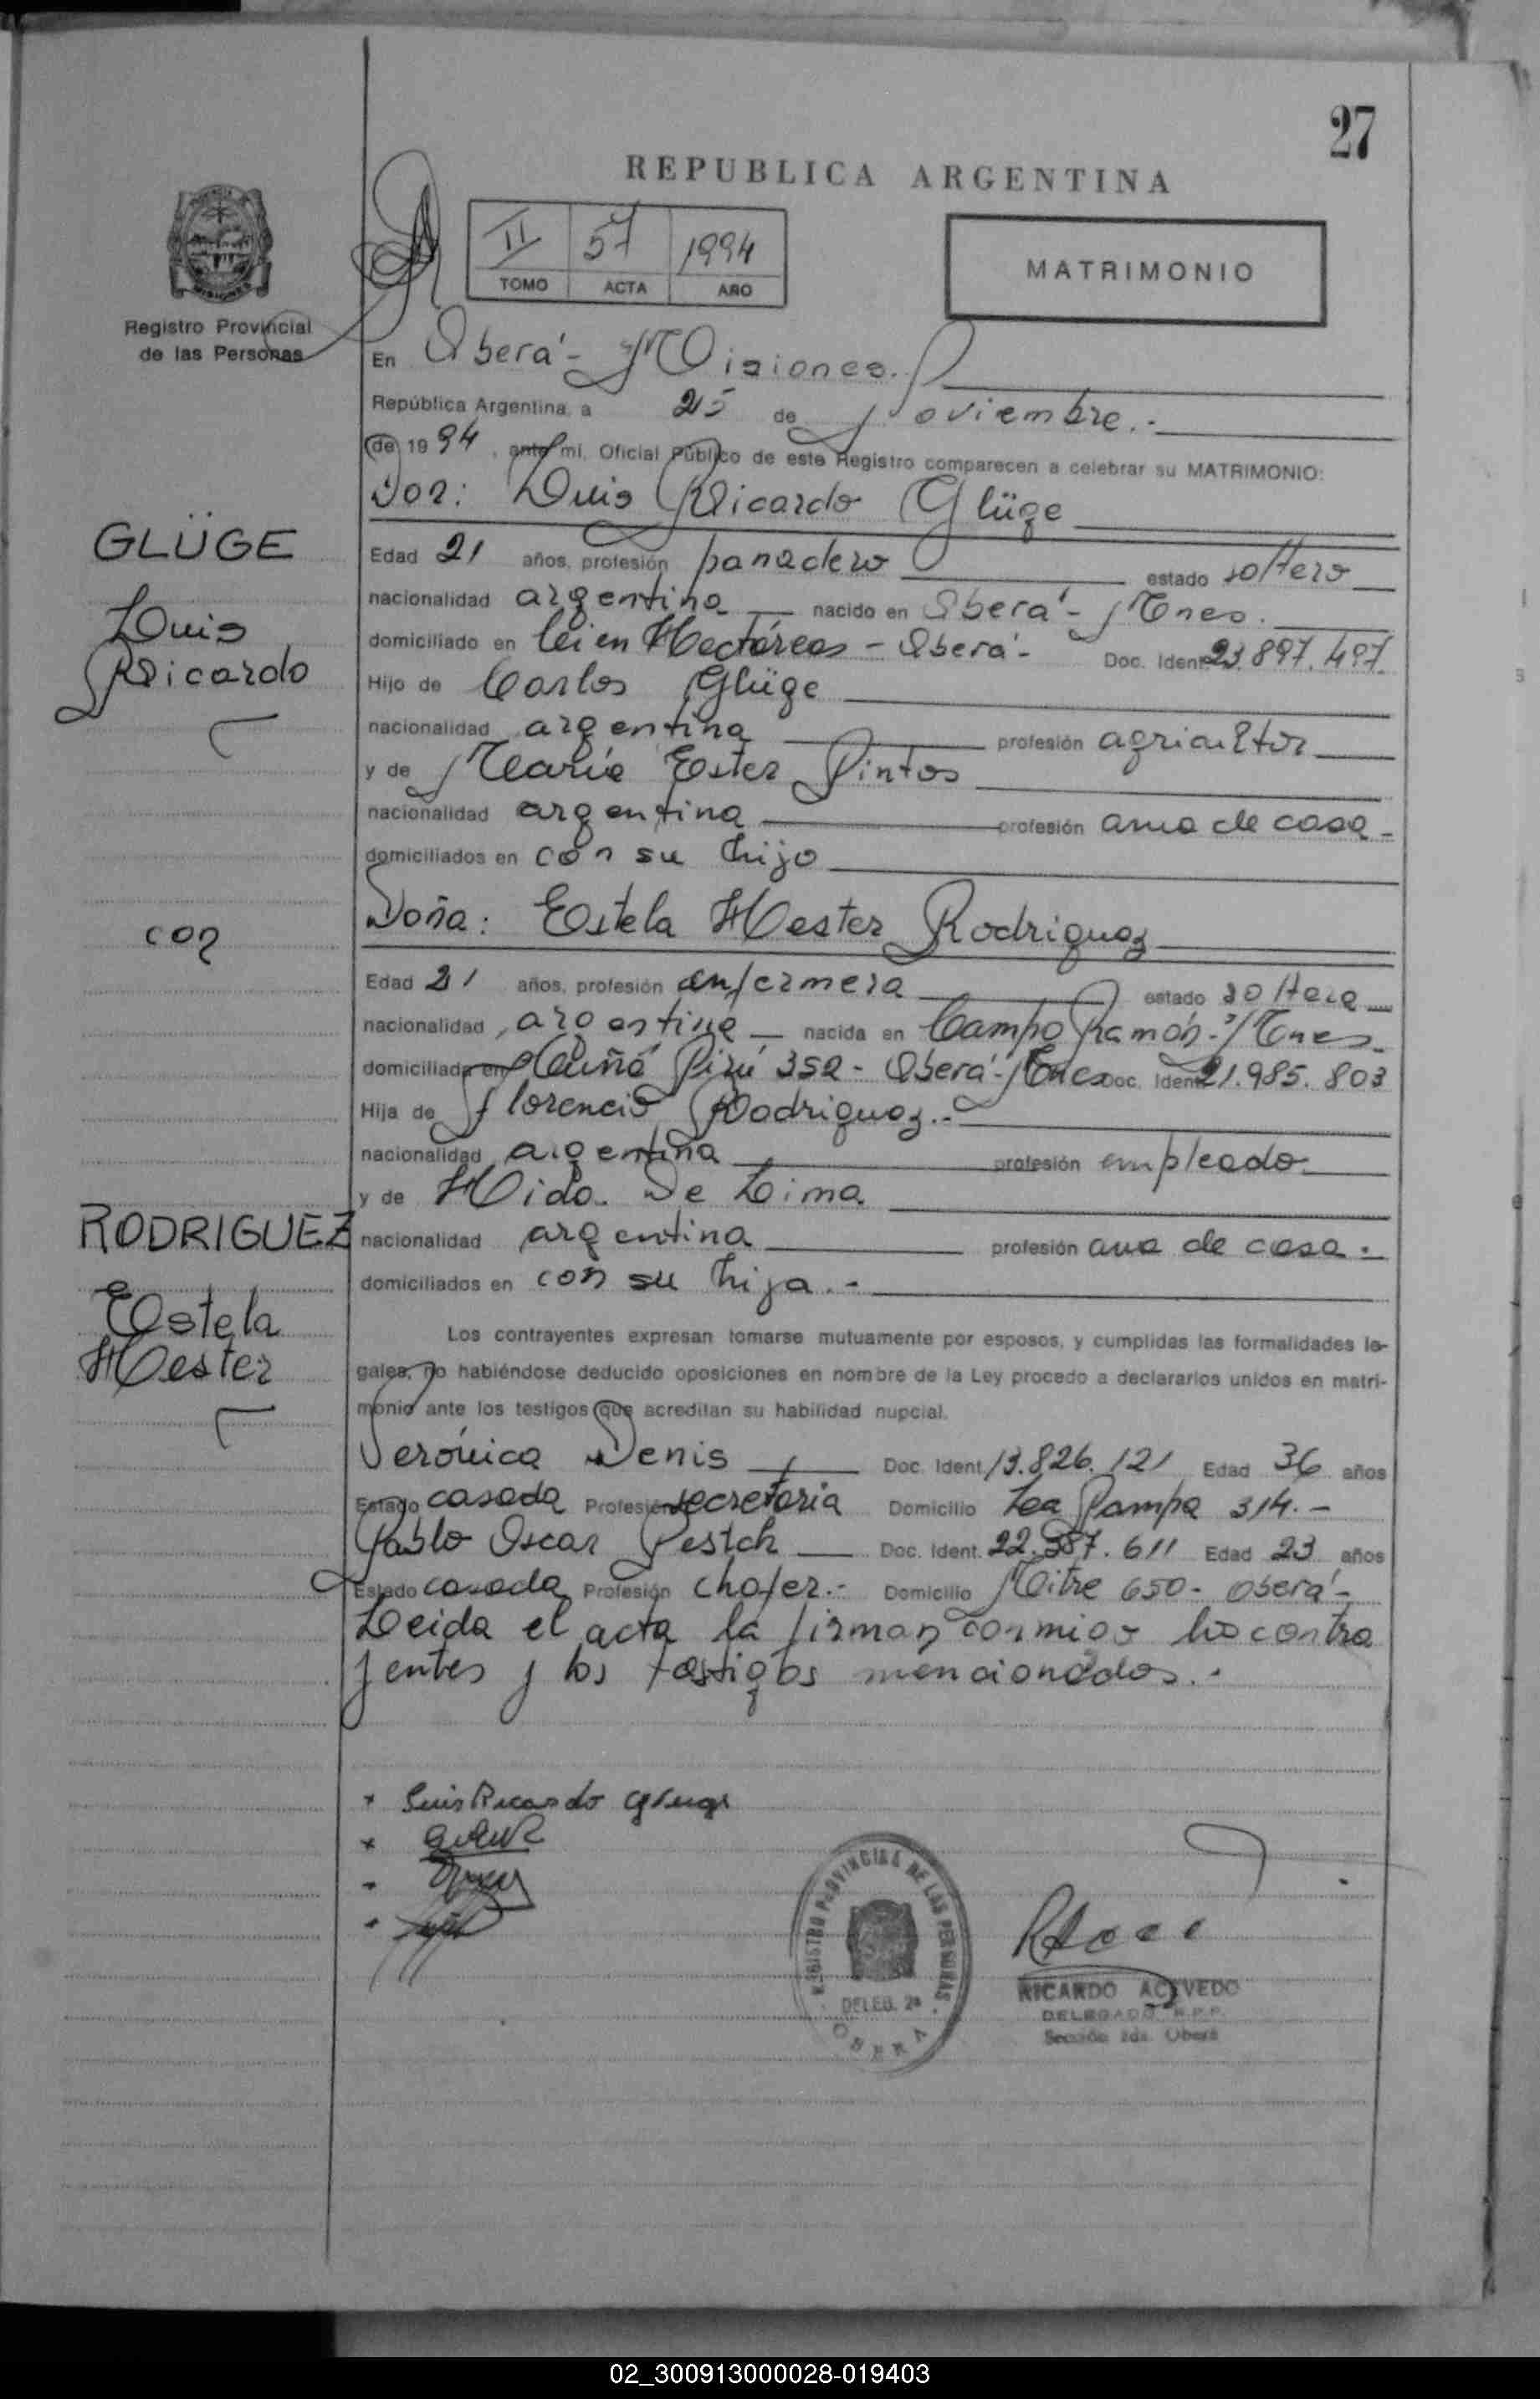 27
REPUBLICA ARGENTINA
II 57 1994
TOMO ACTA AÑO
MATRIMONIO
Registro Provincial
de las Personas
En Oberá - Misiones.
República Argentina, a 25 de Noviembre.-
de 1994, ante mi, Oficial Público de este Registro comparecen a celebrar su MATRIMONIO:
Don: Luis Ricardo Glüge
GLÜGE
Luis
Ricardo
Edad 21 años, profesión panadero estado soltero
nacionalidad argentina nacido en Oberá - Mnes.
domiciliado en Cien Hectáreas - Oberá - Doc. Ident. 23.897.497.
Hijo de Carlos Glüge
nacionalidad argentina profesión agricultor
y de María Ester Pintos
nacionalidad argentina profesión ama de casa -
domiciliados en con su hijo
con
Doña: Estela Hester Rodriguez
Edad 21 años, profesión enfermera estado soltera
nacionalidad argentina nacida en Campo Ramón - Mnes.
domiciliada en Pirú 352 - Oberá - Mnes Doc. Ident. 21.985.803
Hija de Florencio Rodriguez.-
nacionalidad argentina profesión empleado
y de De Lima
nacionalidad argentina profesión ama de casa.
domiciliados en con su hija.-
RODRIGUEZ
Estela
Hester
Los contrayentes expresan tomarse mutuamente por esposos, y cumplidas las formalidades le-
gales, no habiéndose deducido oposiciones en nombre de la Ley procedo a declararlos unidos en matri-
monio ante los testigos que acreditan su habilidad nupcial.
Verónica Denis Doc. Ident. 13.826.121 Edad 36 años
Estado casada Profesión secretaria Domicilio La Pampa 314.-
Pablo Oscar Pestch Doc. Ident. 22.387.611 Edad 23 años
Estado casado Profesión chofer.- Domicilio Mitre 650 - Oberá -
Leida el acta la firman conmigo los contra
yentes y los testigos mencionados.-
Luis Ricardo Gluge
REGISTRO PROVINCIAL DE LAS PERSONAS
DELEG. 2ª
OBERA
RICARDO ACEVEDO
DELEGADO R.P.P.
Sección 2da. Oberá
02_300913000028-019403